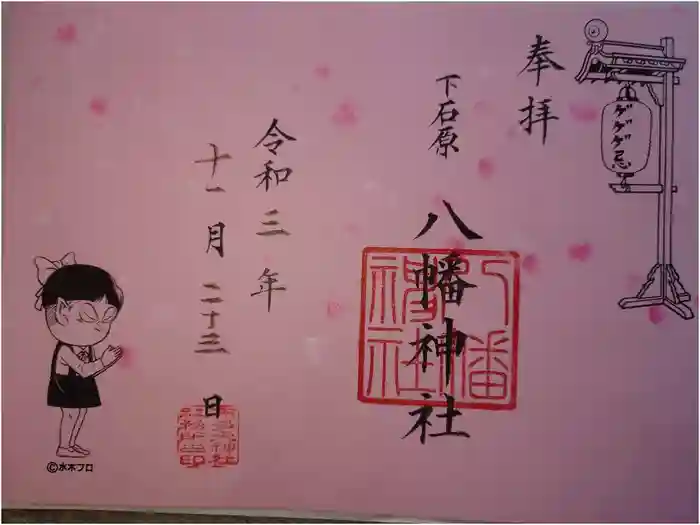 奉拝
ゲゲゲ忌
下石原
八幡神社
八幡神社
令和三年
十一月二十三日
©水木プロ